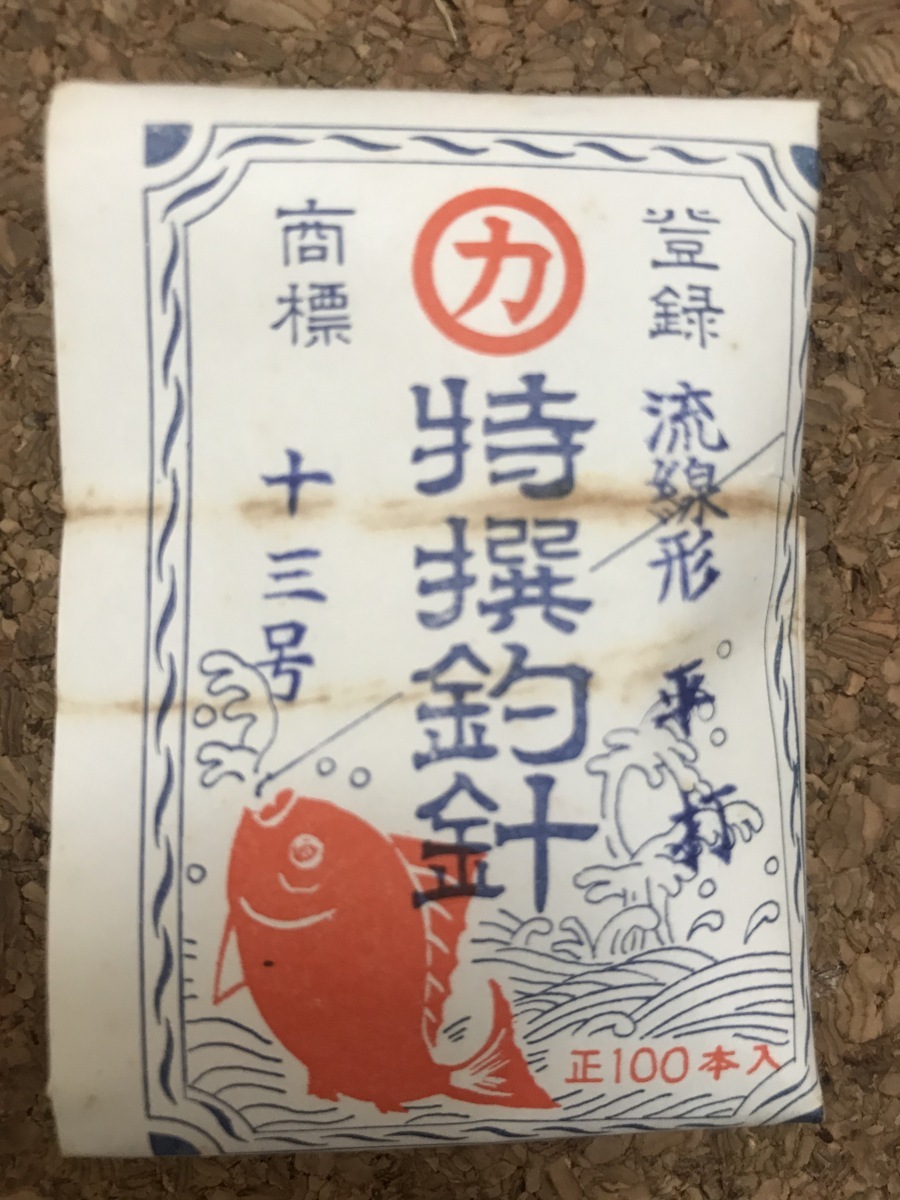 登録
商標
カ
特撰釣針
流線形
平打
十三号
正100本入